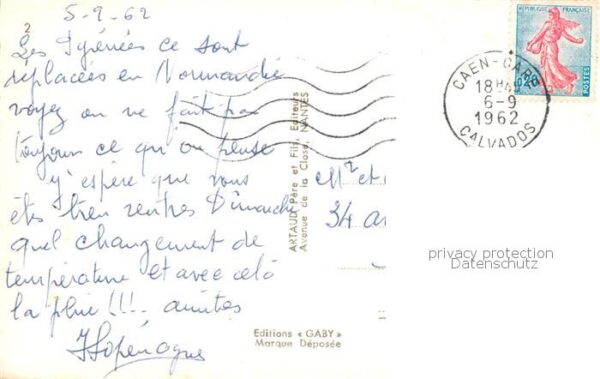 5-9-62
2
Les Pyrénées ce sont
replacées en Normandie
voyez on ne fait pas
toujours ce qu'on pense
j'espère que vous
êtes bien rentrés Dimanche
quel changement de
température et avec celà
la pluie !!! amitiés
ARTAUD Père et Fils, Editeurs
Avenue de la Close, NANTES
Editions « GABY »
Marque Déposée
RÉPUBLIQUE FRANÇAISE
POSTES
CAEN-GARE
18H
6-9
1962
CALVADOS
et
34
privacy protection
Datenschutz